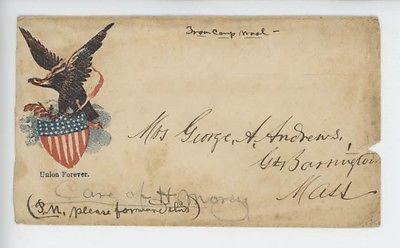 From Camp Wool –
Mrs George, A, Andrews,
Gt Barrington
Mass
Union Forever.
Care of H Morey
(P.M. please forward this)